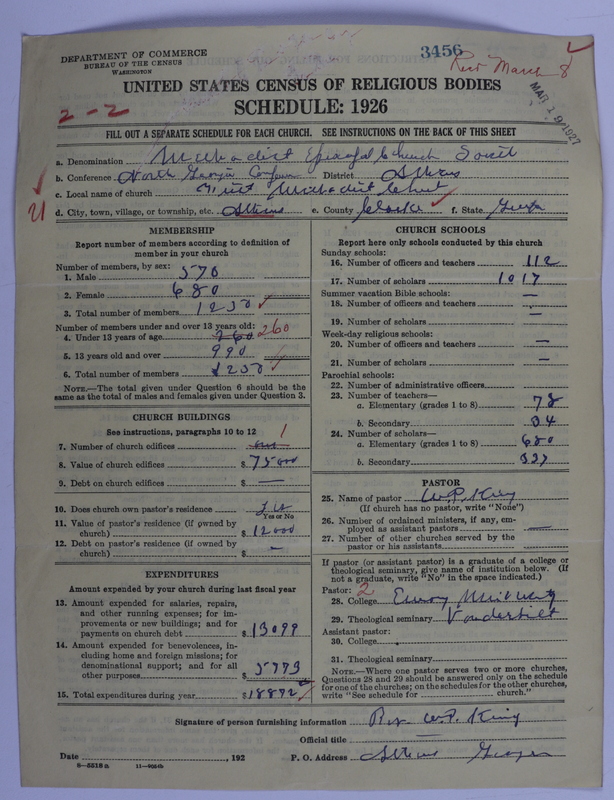 3456
Rev March 8
DEPARTMENT OF COMMERCE
BUREAU OF THE CENSUS
WASHINGTON
MAR 19 1927
UNITED STATES CENSUS OF RELIGIOUS BODIES
SCHEDULE: 1926
2-2
FILL OUT A SEPARATE SCHEDULE FOR EACH CHURCH. SEE INSTRUCTIONS ON THE BACK OF THIS SHEET
a. Denomination Methodist Episcopal Church South
b. Conference North Georgia Conference District Athens
c. Local name of church First Methodist Church
d. City, town, village, or township, etc. Athens e. County Clarke f. State Georgia
MEMBERSHIP
Report number of members according to definition of
member in your church
Number of members, by sex:
1. Male 570
2. Female 680
3. Total number of members 1250
Number of members under and over 13 years old:
4. Under 13 years of age 260 260
5. 13 years old and over 990
6. Total number of members 1250
NOTE.—The total given under Question 6 should be the
same as the total of males and females given under Question 3.
CHURCH BUILDINGS
See instructions, paragraphs 10 to 12
7. Number of church edifices one 1
8. Value of church edifices $ 75000
9. Debt on church edifices $ —
10. Does church own pastor's residence Yes
Yes or No
11. Value of pastor's residence (if owned by
church) $ 12000
12. Debt on pastor's residence (if owned by
church) $ —
EXPENDITURES
Amount expended by your church during last fiscal year
13. Amount expended for salaries, repairs,
and other running expenses; for im-
provements or new buildings; and for
payments on church debt $ 13099
14. Amount expended for benevolences, in-
cluding home and foreign missions; for
denominational support; and for all
other purposes $ 5773
15. Total expenditures during year $ 18872
CHURCH SCHOOLS
Report here only schools conducted by this church
Sunday schools:
16. Number of officers and teachers 112
17. Number of scholars 1017
Summer vacation Bible schools:
18. Number of officers and teachers —
19. Number of scholars —
Week-day religious schools:
20. Number of officers and teachers —
21. Number of scholars —
Parochial schools:
22. Number of administrative officers
23. Number of teachers—
a. Elementary (grades 1 to 8) 78
b. Secondary 34
24. Number of scholars—
a. Elementary (grades 1 to 8) 680
b. Secondary 337
PASTOR
25. Name of pastor W.P. King
(If church has no pastor, write "None")
26. Number of ordained ministers, if any, em-
ployed as assistant pastors —
27. Number of other churches served by the
pastor or his assistants
If pastor (or assistant pastor) is a graduate of a college or
theological seminary, give name of institution below. (If
not a graduate, write "No" in the space indicated.)
Pastor: 2
28. College Emory University
29. Theological seminary Vanderbilt
Assistant pastor:
30. College
31. Theological seminary
NOTE.—Where one pastor serves two or more churches,
Questions 28 and 29 should be answered only on the schedule
for one of the churches; on the schedules for the other churches,
write "See schedule for church."
Signature of person furnishing information Rev. W.P. King
Official title
Date , 192 P. O. Address Athens Georgia